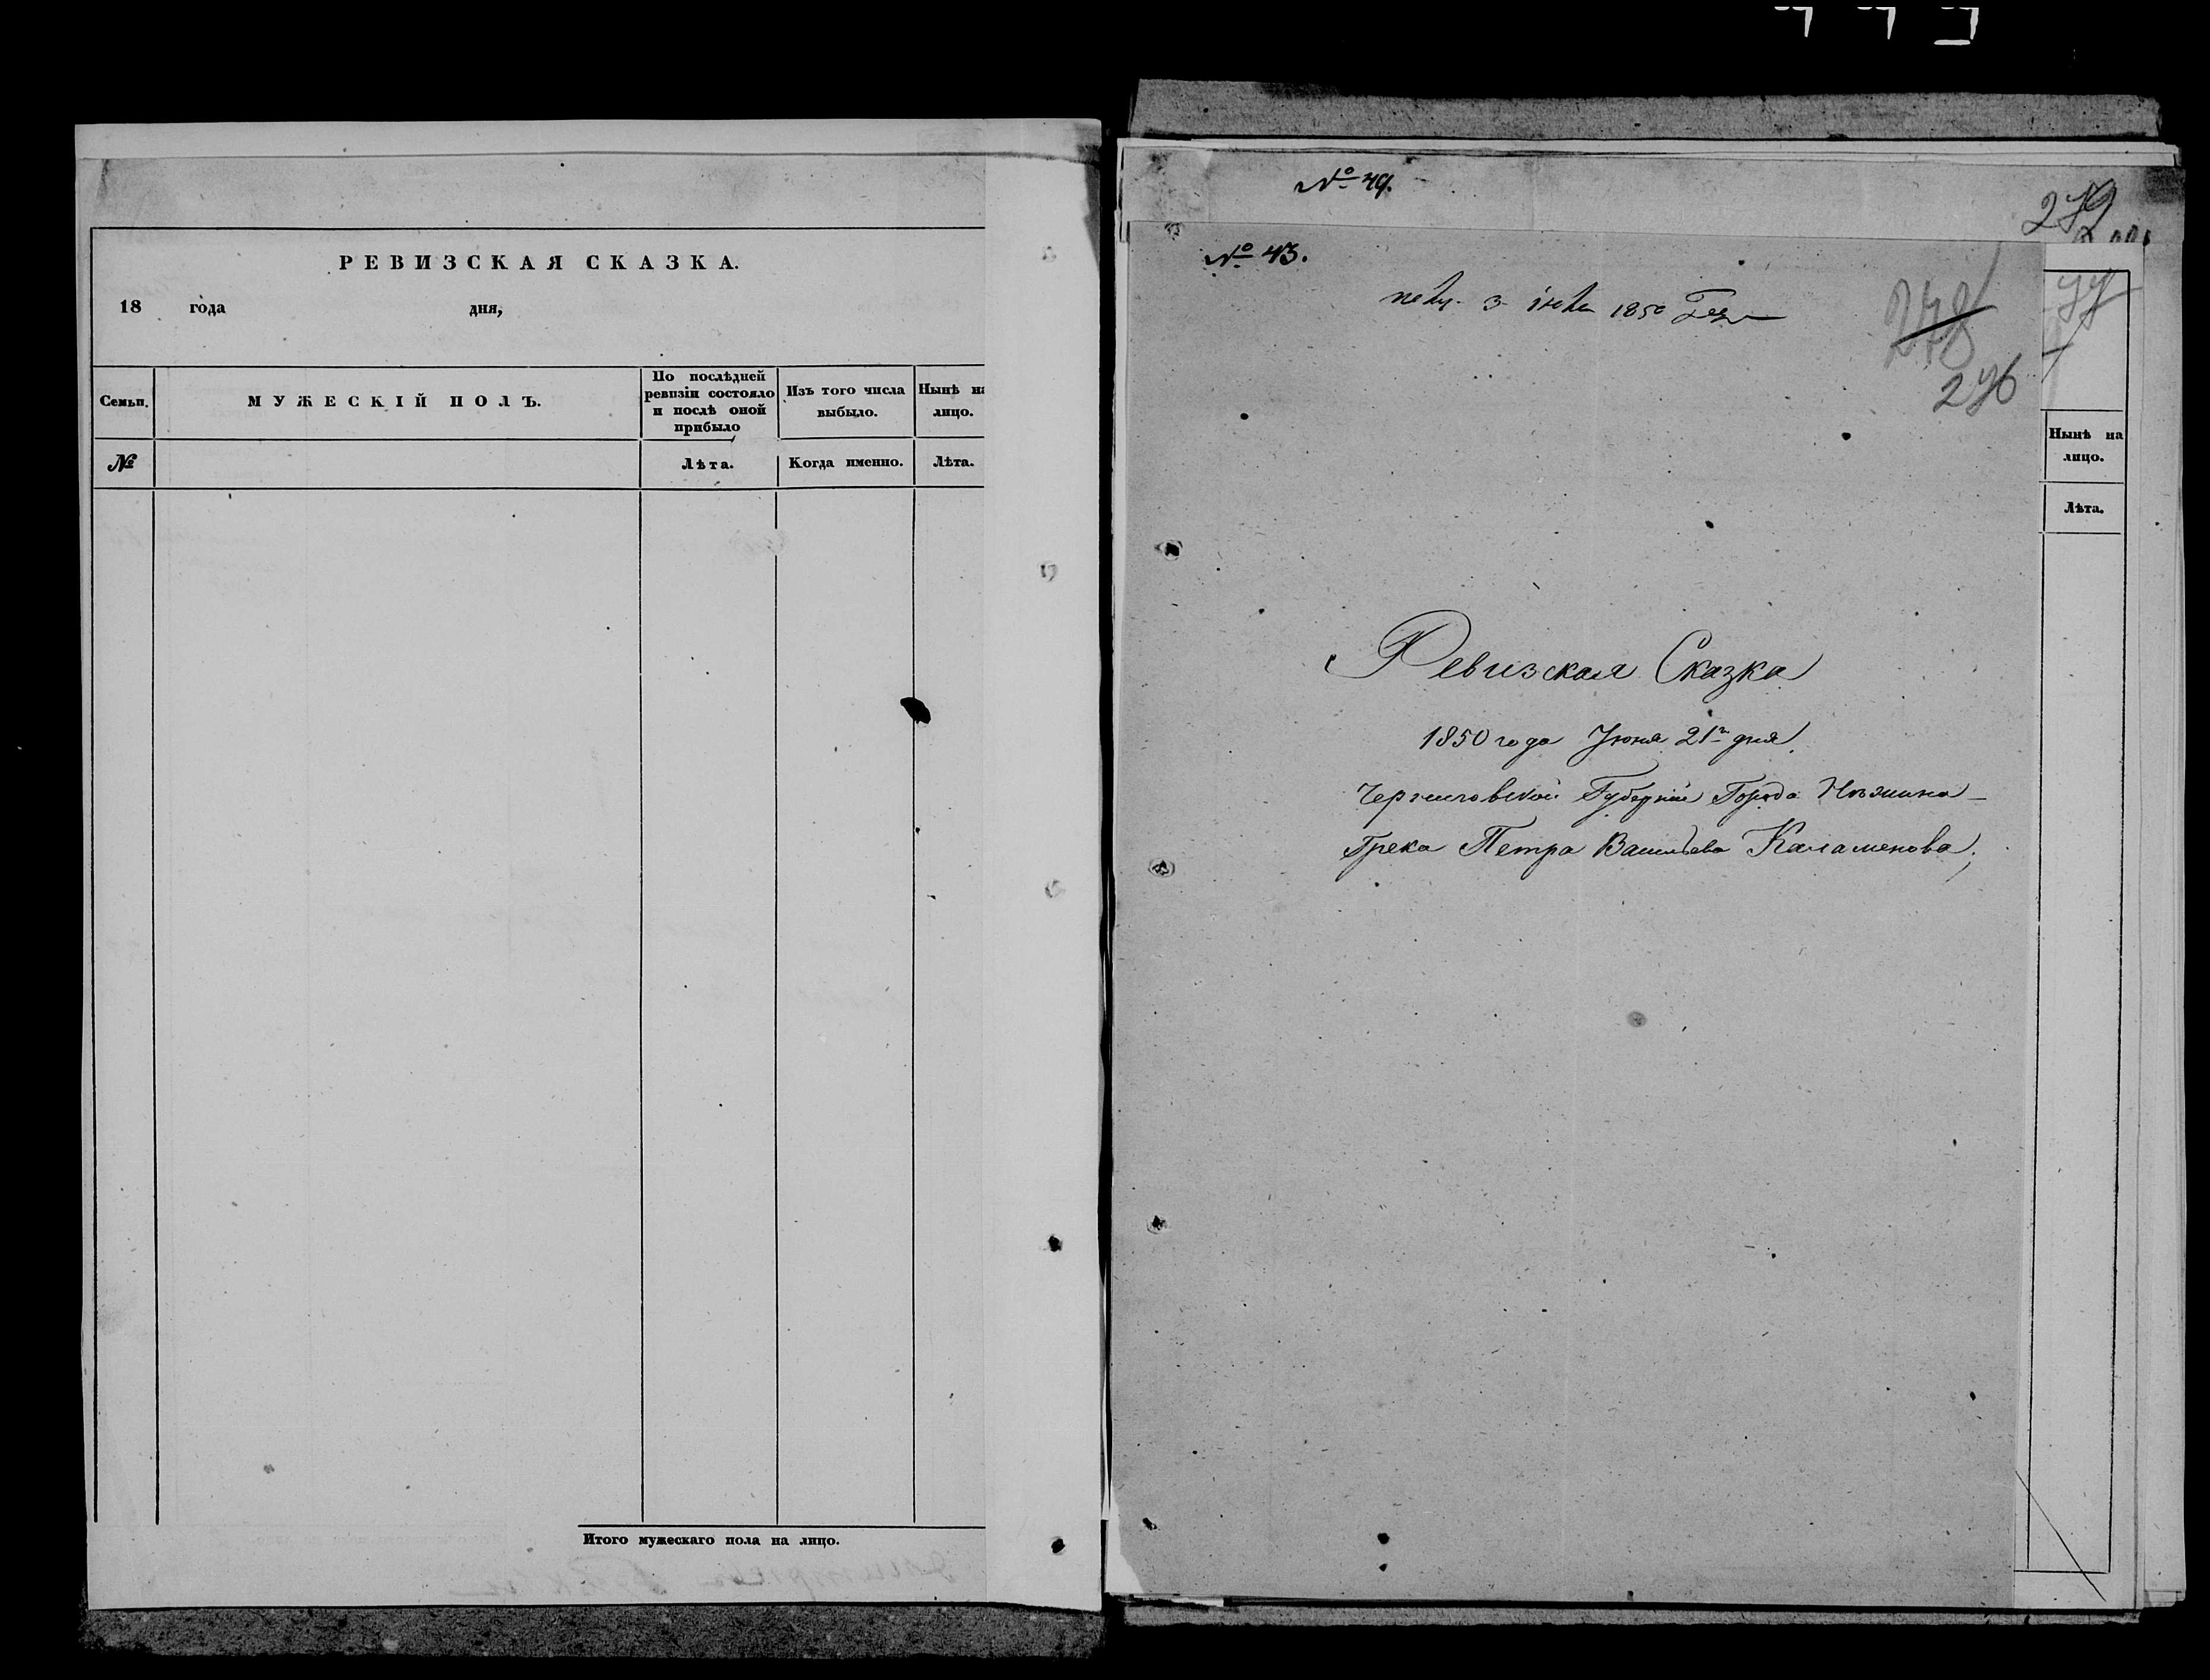 РЕВИЗСКАЯ СКАЗКА.
18 года дня,
Семьи. МУЖЕСКІЙ ПОЛЪ. По послѣдней ревизіи состояло и послѣ оной прибыло Изъ того числа выбыло. Нынѣ на лицо.
№ Лѣта. Когда именно. Лѣта.
Итого мужескаго пола на лицо.
№ 49.
279
№ 43.
3 1850
278
276
77
Нынѣ на лицо.
Лѣта.
Ревизская Сказка
1850 года Июня 21го дня
Черниговской Губерніи Города Нѣжина
Грека Петра Васильева Каламенова;